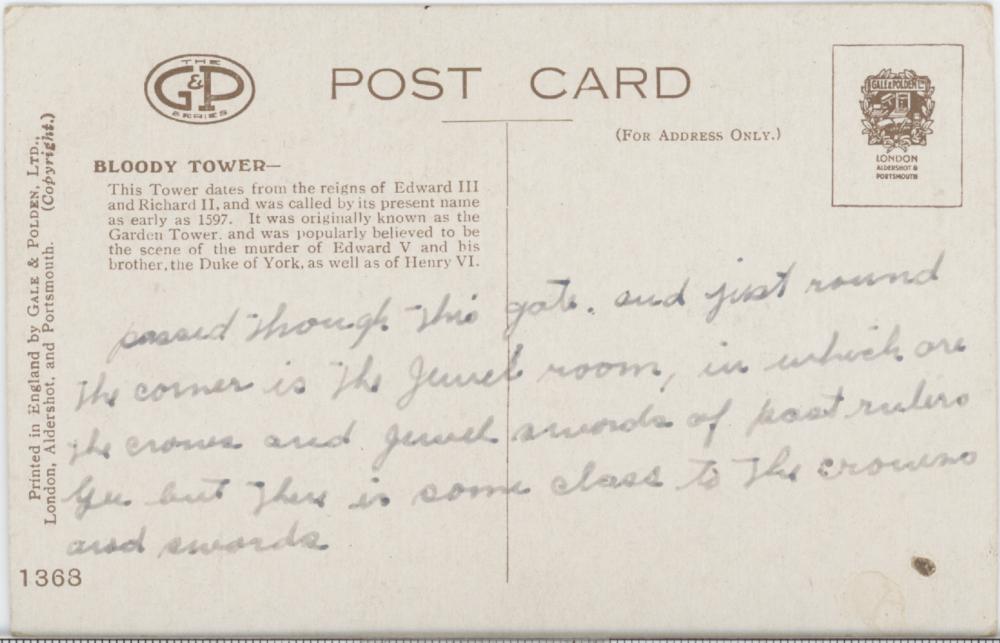 THE
G&P
SERIES
POST CARD
(FOR ADDRESS ONLY.)
GALE & POLDEN LTD
LONDON
ALDERSHOT &
PORTSMOUTH
Printed in England by GALE & POLDEN, LTD.,
London, Aldershot, and Portsmouth. (Copyright.)
BLOODY TOWER—
This Tower dates from the reigns of Edward III
and Richard II, and was called by its present name
as early as 1597. It was originally known as the
Garden Tower. and was popularly believed to be
the scene of the murder of Edward V and his
brother, the Duke of York, as well as of Henry VI.
passed though this gate. and just round
the corner is the Jewel room, in which are
the crowns and jewel swords of past rulers
Gee but there is some class to the crowns
and swords
1368